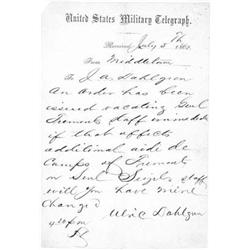 United States Military Telegraph.
Received July 5 Th 186
From Middletown
To J A Dahlgren
An order has been
issued vacating Genl
Fremonts Staff
if that affects
additional aide de
Camps of Fremonts
on Genl Seigels staff
will you have mine
Changed
Ulric Dahlgren